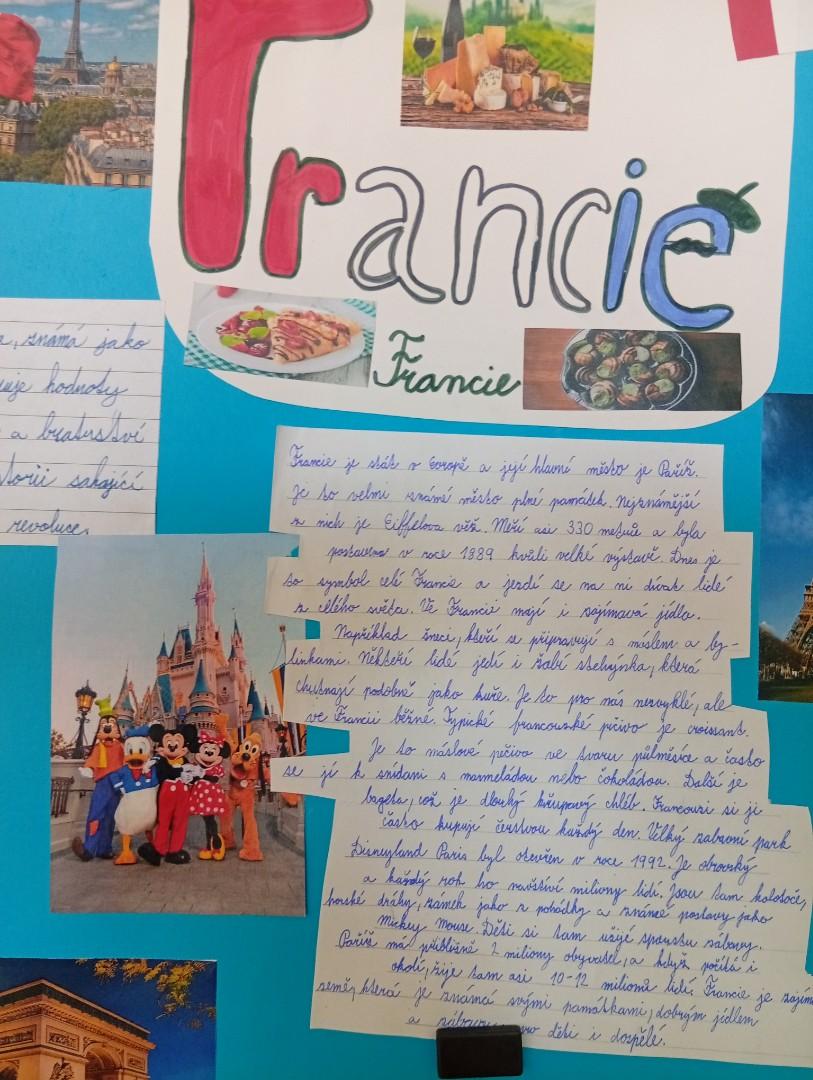 Francie
Francie
a, známá jako
uje hodnoty
a bratrství
torii sahající
revoluce.
Francie je stát v Evropě a její hlavní město je Paříž.
Je to velmi známé město plné památek. Nejznámější
z nich je Eiffelova věž. Měří asi 330 metrů a byla
postavena v roce 1889 kvůli velké výstavě. Dnes je
to symbol celé Francie a jezdí se na ni dívat lidé
z celého světa. Ve Francii mají i zajímavá jídla.
Například šneci, kteří se připravují s máslem a by-
linkami. Někteří lidé jedí i žabí stehýnka, která
chutnají podobně jako kuře. Je to pro nás nezvyklé, ale
ve Francii běžné. Typické francouzské pečivo je croissant.
Je to máslové pečivo ve tvaru půlměsíce a často
se jí k snídani s marmeládou nebo čokoládou. Další je
bageta, což je dlouhý křupavý chléb. Francouzi si ji
často kupují čerstvou každý den. Velký zábavní park
Disneyland Paris byl otevřen v roce 1992. Je obrovský
a každý rok ho navštíví miliony lidí. Jsou tam kolotoče,
horské dráhy, zámek jako z pohádky a známé postavy jako
Mickey Mouse. Děti si tam užijí spoustu zábavy.
Paříž má přibližně 2 miliony obyvatel, a když počítá i
okolí, žije tam asi 10-12 milionů lidí. Francie je zajím
země, která je známá svými památkami, dobrým jídlem
a pro děti i dospělé.